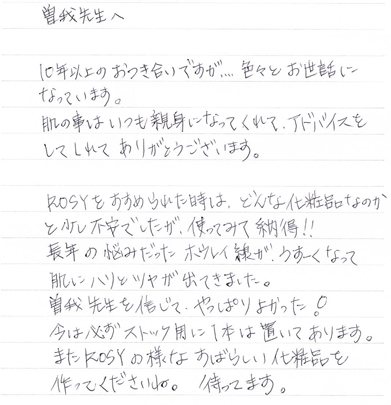 曽我先生へ
10年以上のおつき合いですが.... 色々とお世話に
なっています。
肌の事はいつも親身になってくれて、アドバイスを
してくれてありがとうございます。
ROSYをすすめられた時は、どんな化粧品なのか
と少し不安でしたが、使ってみて納得!!
長年の悩みだったホウレイ線が、うすーくなって
肌にハリとツヤが出てきました。
曽我先生を信じて、やっぱりよかった!
今は必ずストック用に1本は置いてあります。
またROSYの様なすばらしい化粧品を
作ってくださいね。 待ってます。